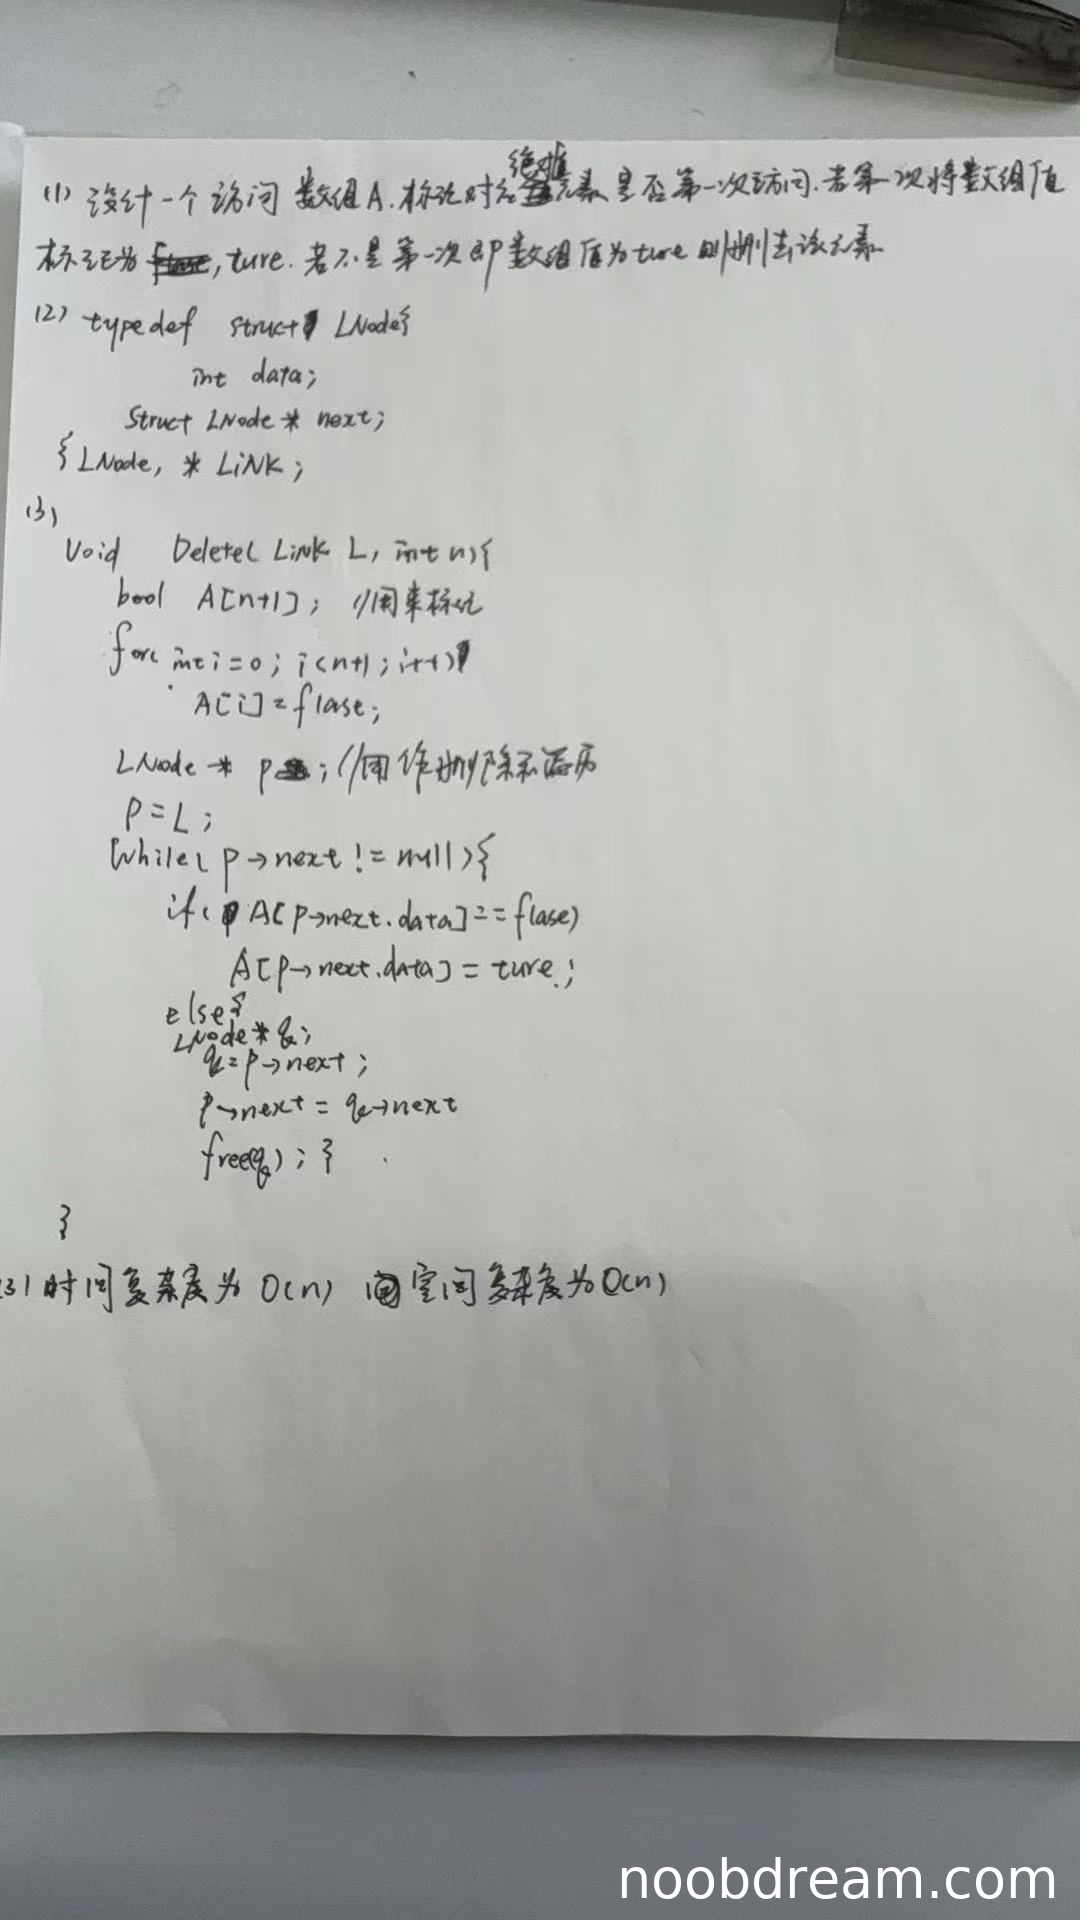 (1) 设计一个访问数组A.标记对应绝对值元素是否第一次访问.若第一次将数组值
标记为 ture.若不是第一次即数组值为ture则删去该元素
(2) typedef struct LNode{
int data;
Struct LNode * next;
}LNode, * LiNK;
(3)
Void Delete( LiNK L, int n){
bool A[n+1]; //用来标记
for( int i=0; i<n+1; i++)
A[i]=flase;
LNode * p; //用作删除和遍历
P=L;
While( p→next != null){
if( A[p→next.data]==flase)
A[p→next.data] = ture;
else{
LNode * q;
q=p→next;
p→next = q→next
free(q); }
}
(3) 时间复杂度为 O(n) 空间复杂度为O(n)
noobdream.com